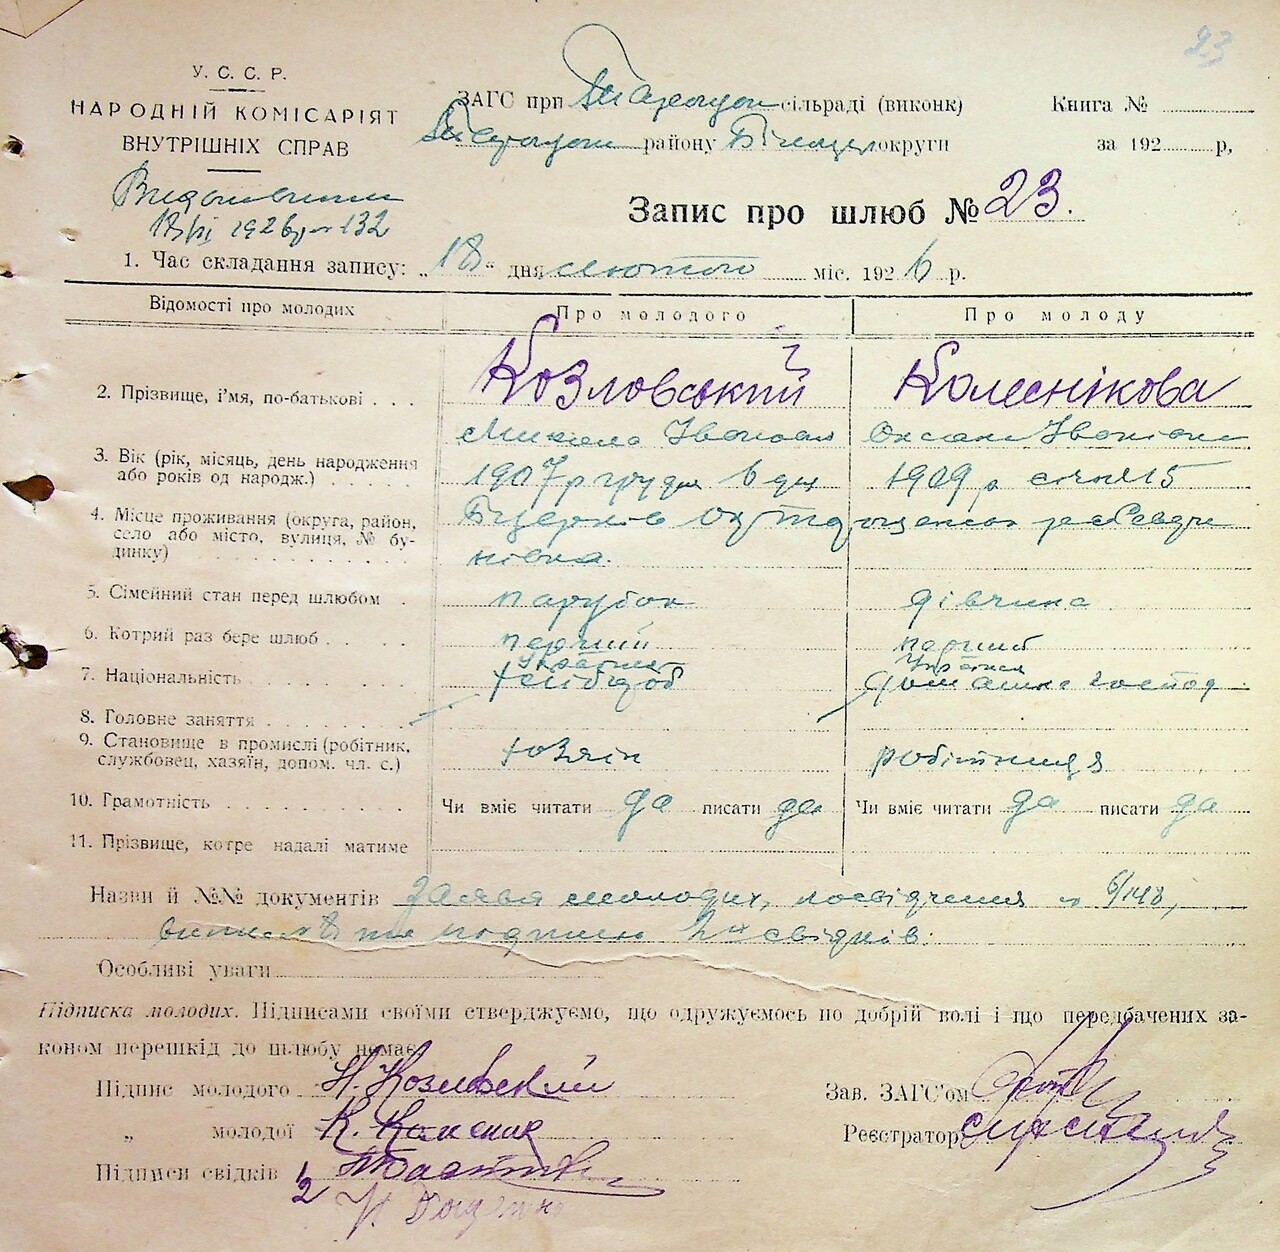 23
У. С. С. Р.
НАРОДНІЙ КОМІСАРІЯТ
ВНУТРІШНІХ СПРАВ
ЗАГС при сільраді (виконк)
району округи
Книга №
за 192 р,
18/ІІ 1926 р № 132
Запис про шлюб № 23.
1. Час складання запису: „18“ дня лютого міс. 1926 р.
Відомості про молодих Про молодого Про молоду
2. Прізвище, і'мя, по-батькові . . . Козловський Колеснікова
Микола Іванович Оксана Іванівна
3. Вік (рік, місяць, день народження або років од народж.) . . . . . 1907 р грудня 6 дня 1909 р січня 15
4. Місце проживання (округа, район, село або місто, вулиця, № будинку)
нівка.
5. Сімейний стан перед шлюбом . парубок дівчина
6. Котрий раз бере шлюб . . . . перший перший
7. Національність Українец Українка
хлібороб домашнє господ
8. Головне заняття . . . . . . . .
9. Становище в промислі (робітник, службовец, хазяїн, допом. чл. с.) хозяїн робітниця
10. Грамотність . . . . . . . . . . Чи вміє читати да писати да Чи вміє читати да писати да
11. Прізвище, котре надалі матиме
Назви й №№ документів Заява молодих, посвідчення № 6/148,
та подписи 2х свідків.
Особливі уваги
Підписка молодих. Підписами своїми стверджуємо, що одружуємось по добрій волі і що передбачених за-
коном перешкід до шлюбу немає
Підпис молодого Н. Козловский
„ молодої К.
Підписи свідків 1
2 Н.
Зав. ЗАГС'ом
Реєстратор